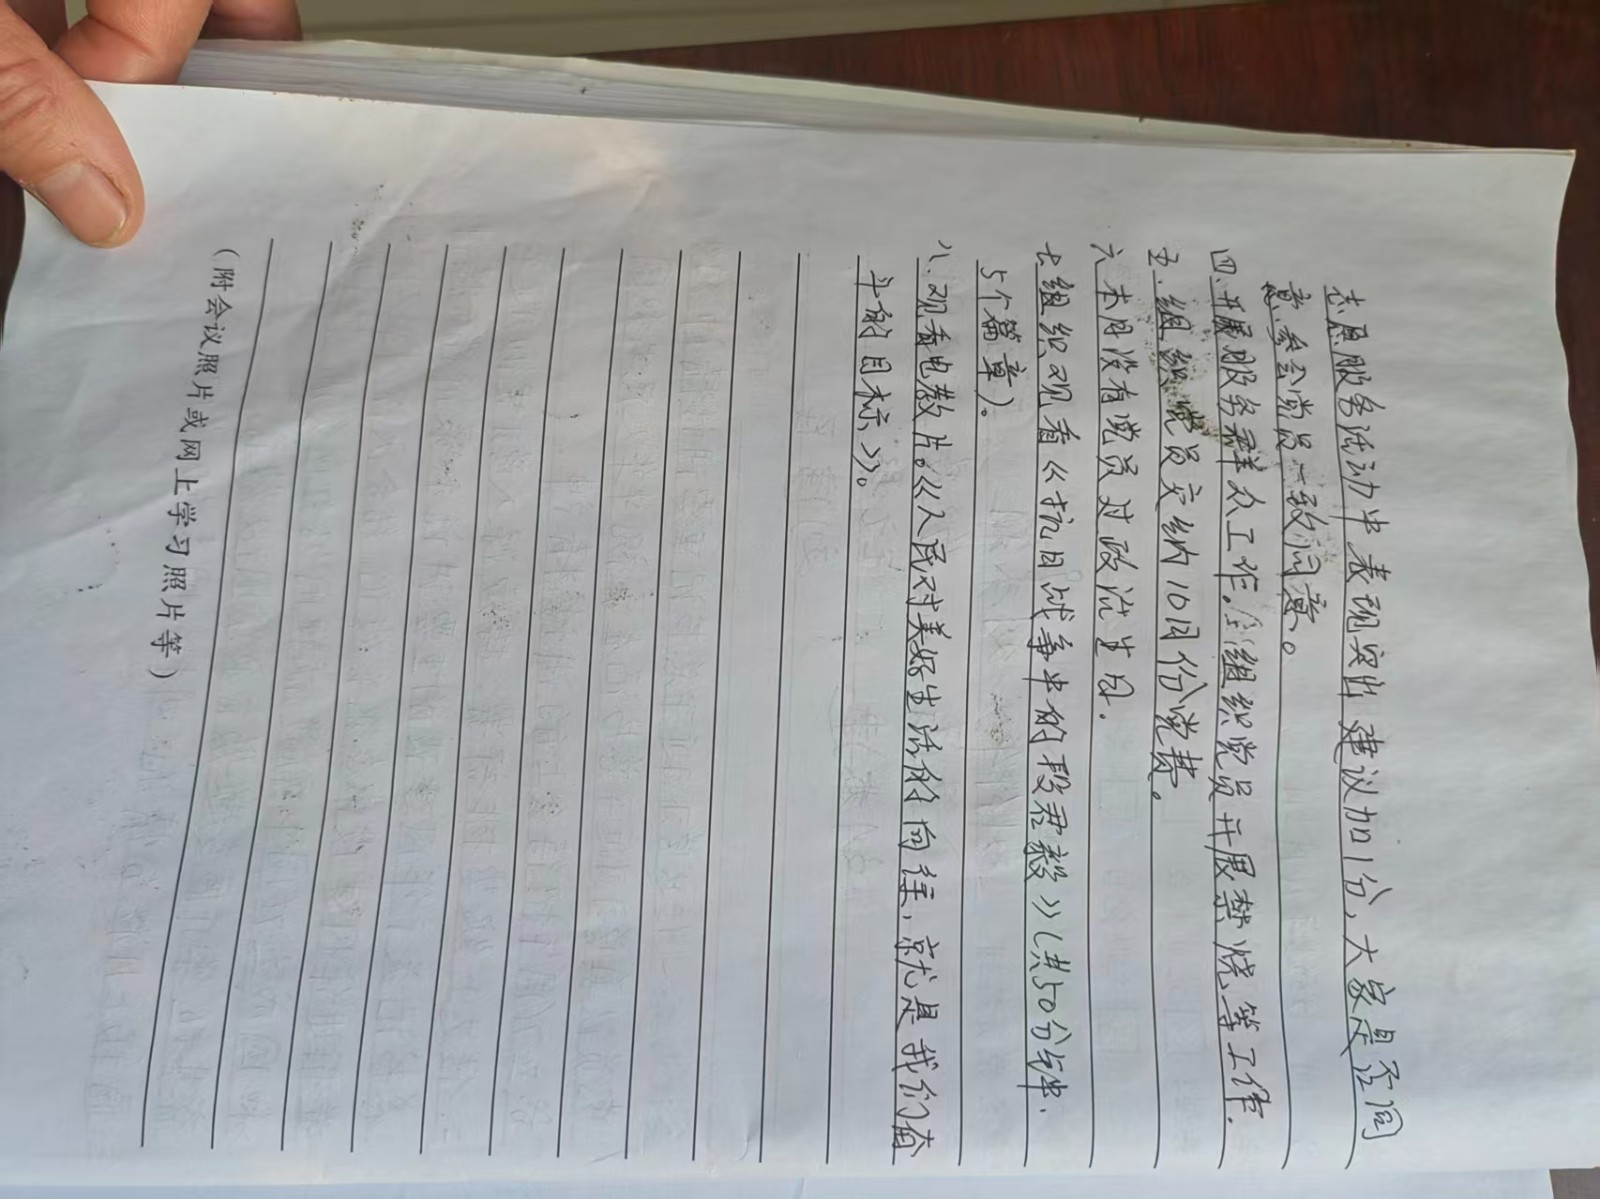 志愿服务活动中表现突出 建议加1分，大家是否同
意：参会党员一致同意。
四.开展服务群众工作。组织党员开展禁烧等工作.
五.组织党员交纳10月份党费。
六.本月没有党员过政治生日.
七.组织观看《抗日战争中的段君毅》（共50分钟.
5个篇章）。
八.观看电教片。《人民对美好生活的向往，就是我们奋
斗的目标》。
（附会议照片或网上学习照片等）